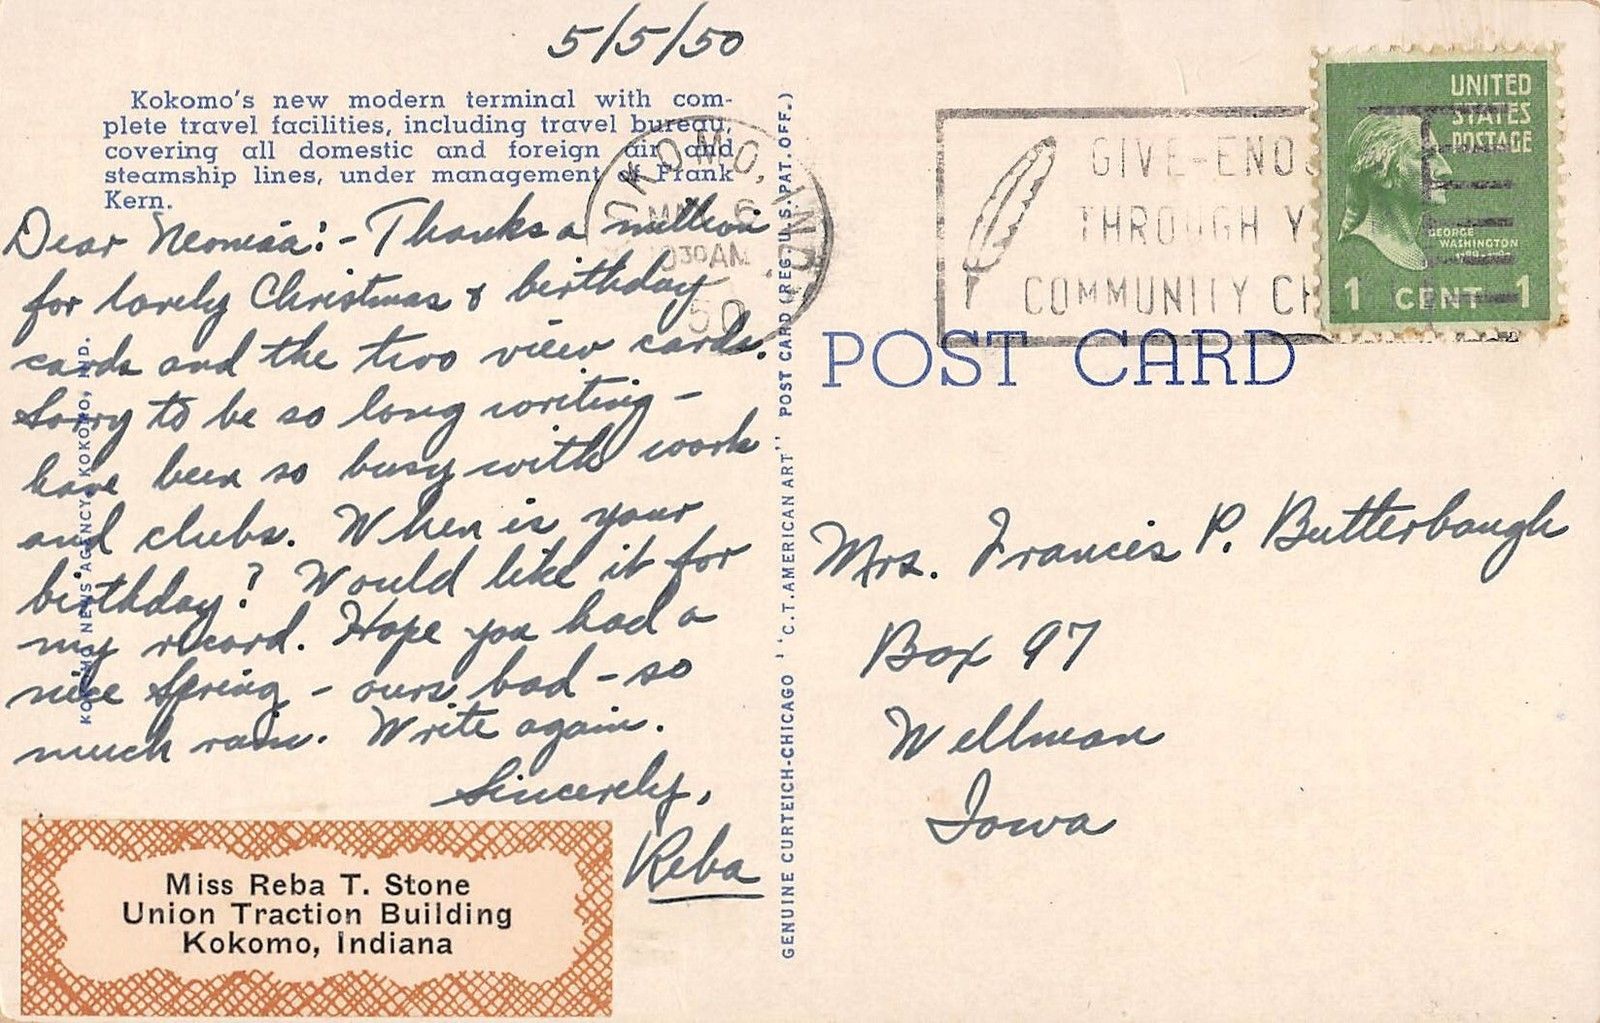 5/5/50
Kokomo's new modern terminal with com-
plete travel facilities, including travel bureau,
covering all domestic and foreign air and
steamship lines, under management of Frank
Kern.
Dear Neomia:- Thanks a million
for lovely Christmas & birthday
cards and the two view cards.
Sorry to be so long writing -
have been so busy with work
and clubs. When is your
birthday? Would like it for
my record. Hope you had a
nice Spring - ours bad - so
much rain. Write again.
Sincerely,
Reba
Miss Reba T. Stone
Union Traction Building
Kokomo, Indiana
KOKOMO NEWS AGENCY, KOKOMO, IND.
GENUINE CURTEICH-CHICAGO "C.T. AMERICAN ART" POST CARD (REG. U.S. PAT. OFF.)
KOKOMO, IND.
MAY 6
1030AM
50
GIVE-ENOU
THROUGH Y
COMMUNITY CH
UNITED
STATES
POSTAGE
GEORGE
WASHINGTON
1 CENT 1
POST CARD
Mrs. Francis P. Butterbaugh
Box 97
Wellman
Iowa